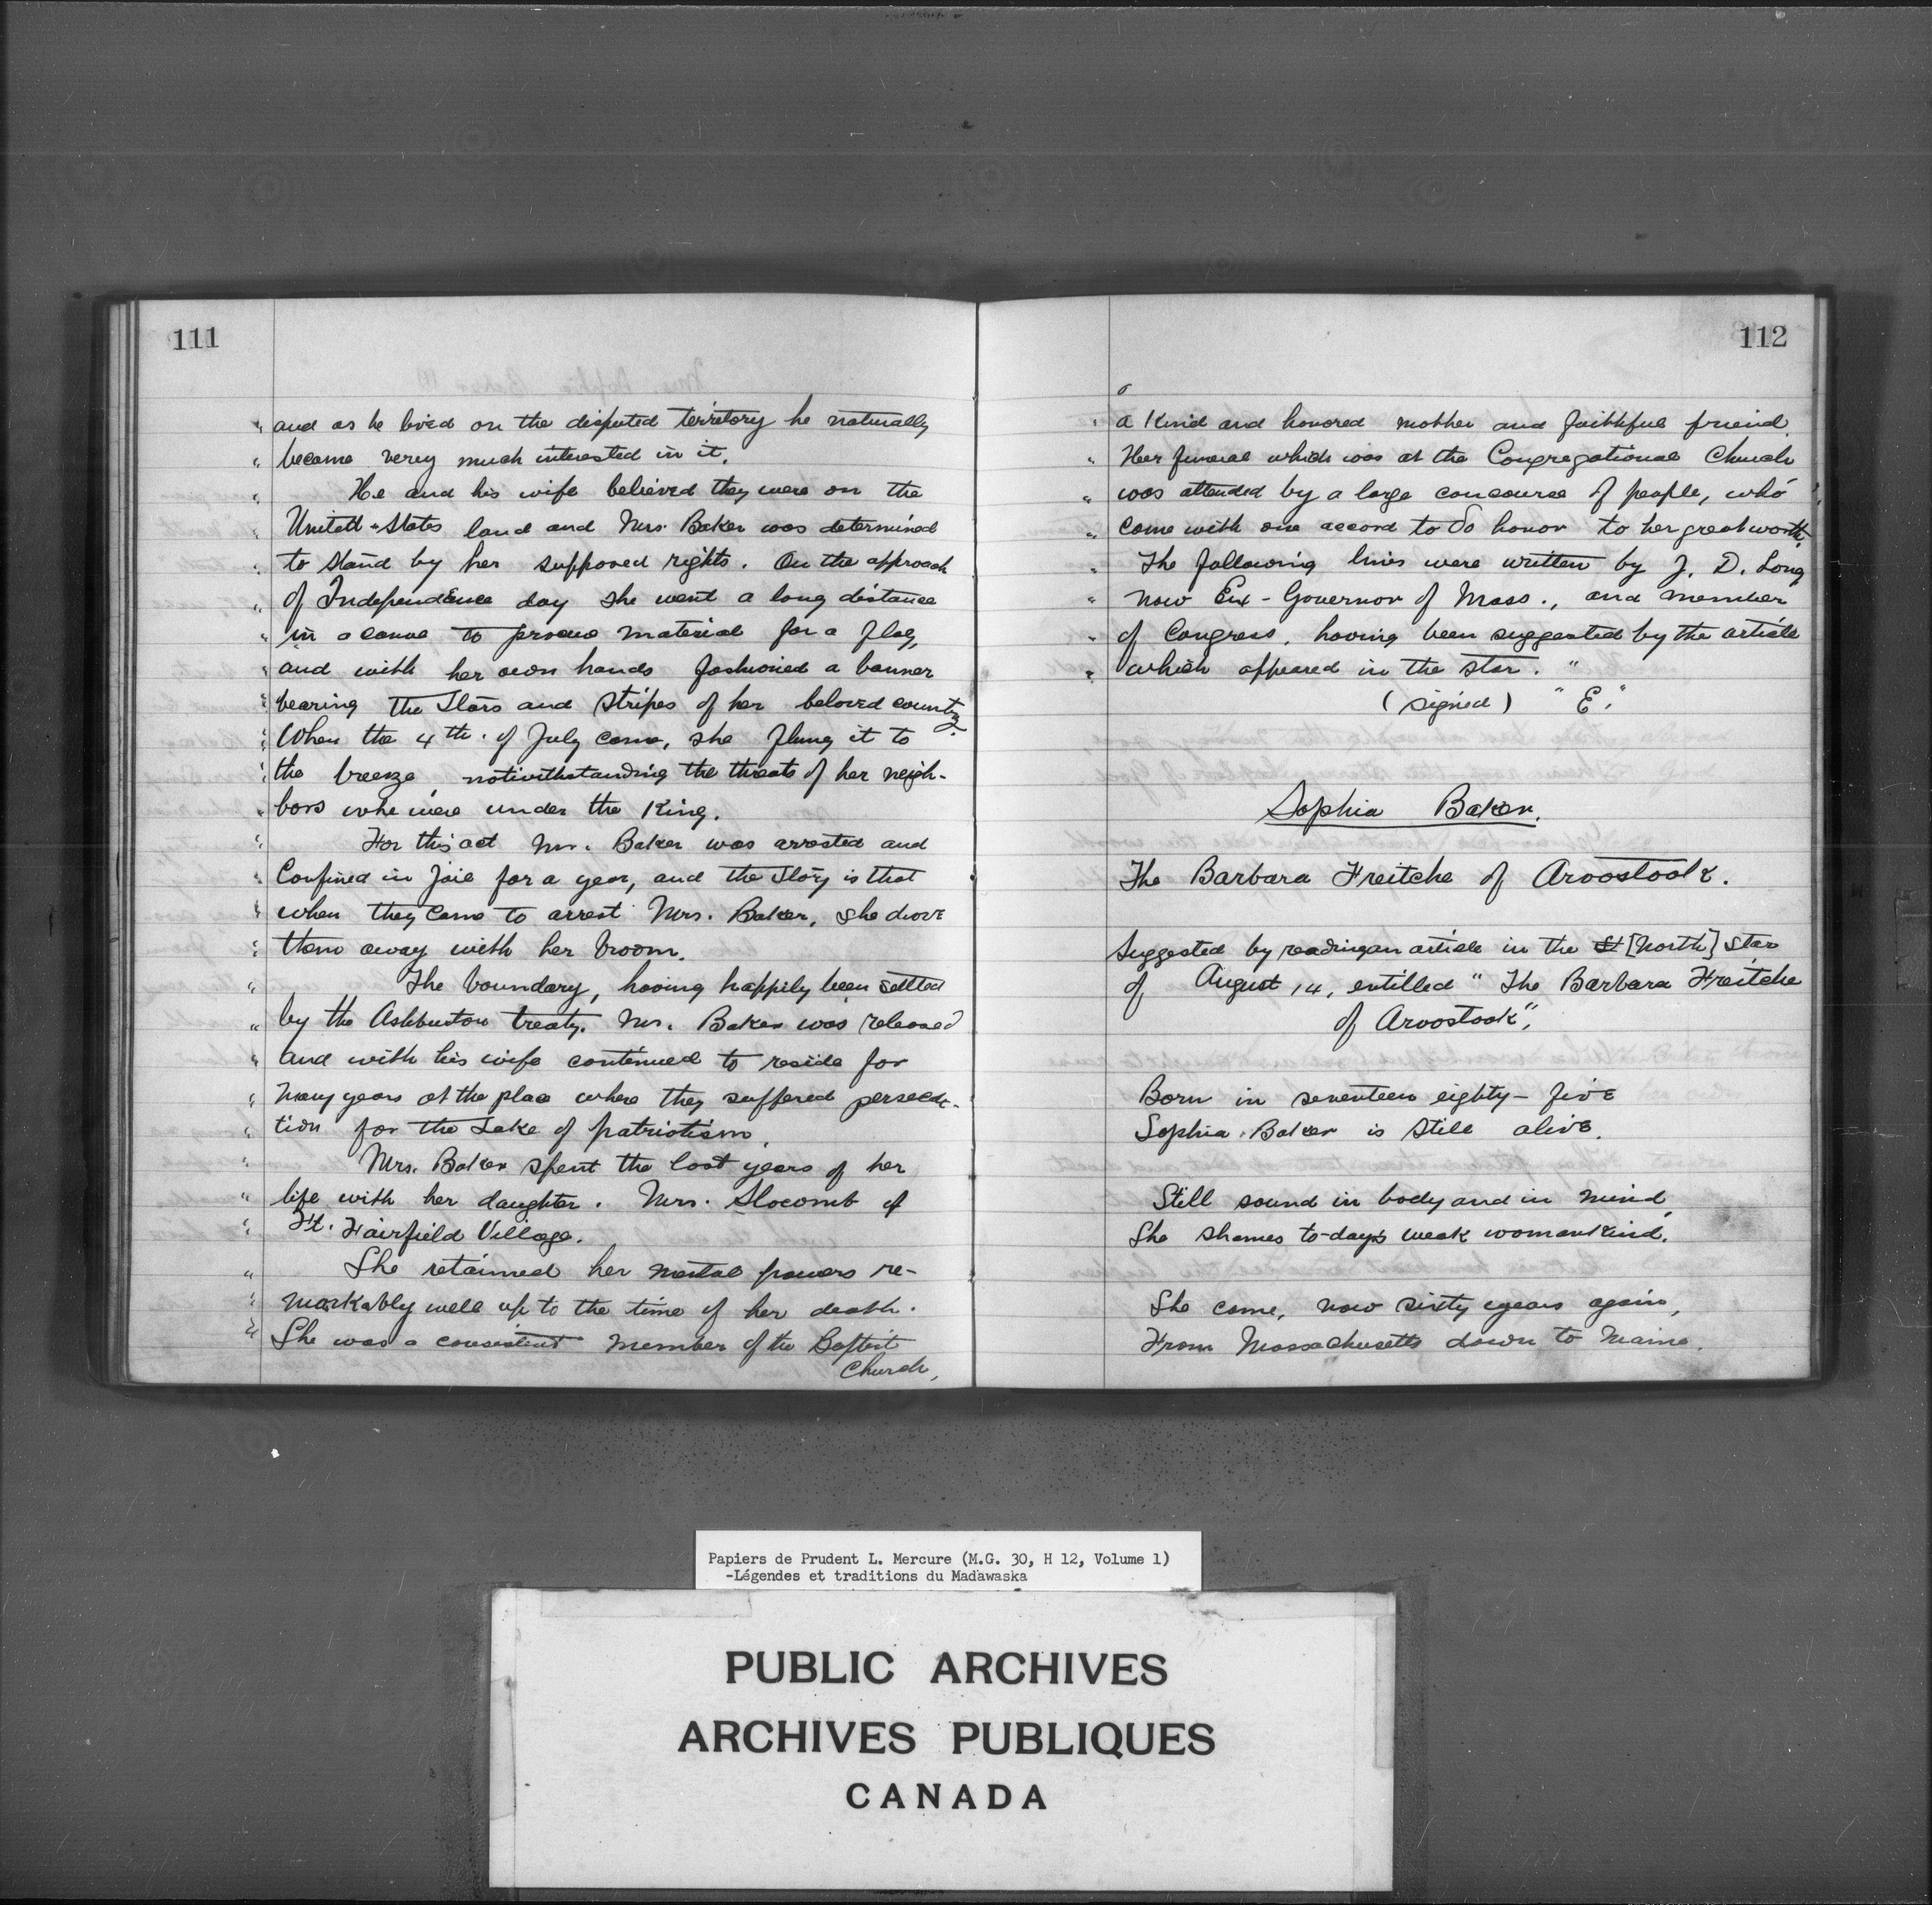 111
" and as he lived on the disputed territory he naturally
" became verey much interested in it.
" He and his wife believed they were on the
" United-States land and Mrs. Baker was determined
" to stand by her supposed rights. On the approach
" of Independence day she went a long distance
" in a canoe to procure material for a flag,
" and with her own hands fashioned a banner
" bearing the Stars and Stripes of her beloved country.
" When the 4th. of July came, she flung it to
" the breeze, notwithstanding the threats of her neigh-
" bors who were under the King.
" For this act Mr. Baker was arrested and
" Confined in Jail for a year, and the story is that
" when they came to arrest Mrs. Baker, she drove
" them away with her broom.
" The boundary, having happily been settled
" by the Ashburton treaty. Mr. Baker was released
" and with his wife continued to reside for
" many years at the place where they suffered persecu-
" tion for the Sake of patriotism.
" Mrs. Baker spent the last years of her
" life with her daughter. Mrs. Slocomb of
" Ft. Fairfield Village.
" She retained her mental powers re-
" markably well up to the time of her death.
" She was a consistent member of the Baptist
Church,
112
" a Kind and honored mother and faithful friend.
" Her funeral which was at the Congregational Church
" was attended by a large concourse of people, who
" came with one accord to do honor to her great worth.
" The following lines were written by J. D. Long
" now Ex-Governor of Mass., and member
" of Congress, having been suggested by the article
" which appeared in the star. "
(signed) "E."
Sophia Baker.
The Barbara Freitche of Aroostook.
Suggested by reading an article in the St [North] Star
of August 14, entitled "The Barbara Freitche
of Aroostook",
Born in seventeen eighty-five
Sophia Baker is still alive.
Still sound in body and in mind,
She shames to-days weak womankind.
She came, now sixty years again,
From Massachusetts down to Maine.
Papiers de Prudent L. Mercure (M.G. 30, H 12, Volume 1)
-Légendes et traditions du Madawaska
PUBLIC ARCHIVES
ARCHIVES PUBLIQUES
CANADA